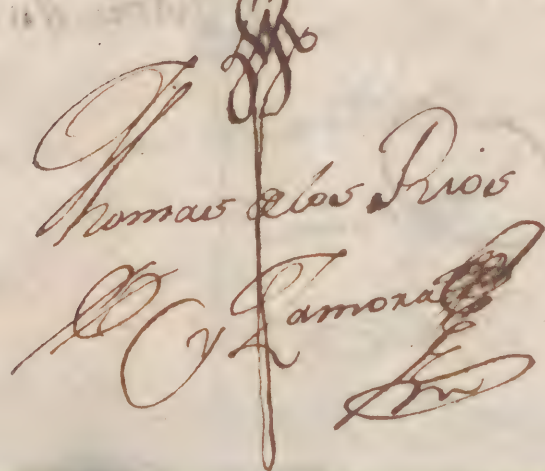 Thomas de los Rios
y Zamora